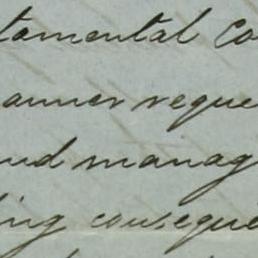 tamental co
anner reque
and manag
ing conseque